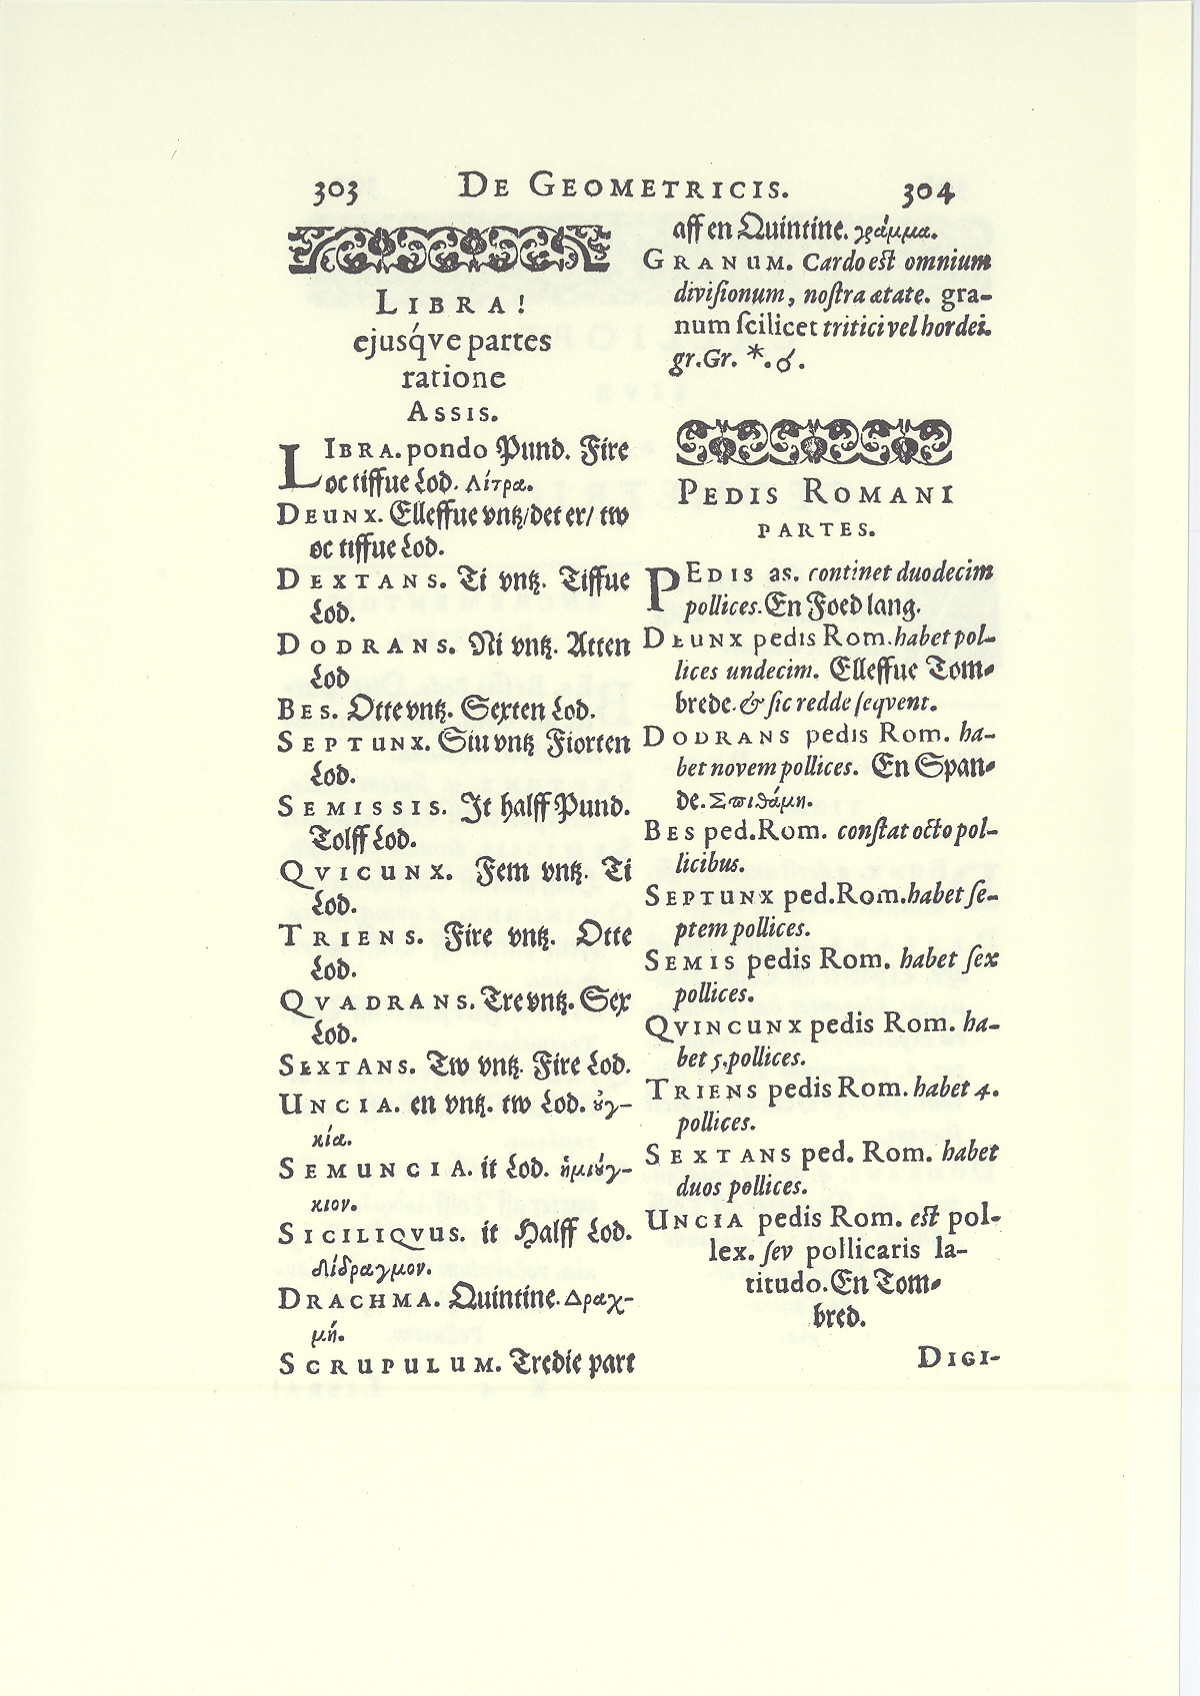 303 DE GEOMETRICIS. 304
LIBRA!
ejusq́ve partes
ratione
ASSIS.
LIBRA. pondo Pund. Fire
oc tiffue Lod. Λίτρα.
DEUNX. Elleffue vntz/ det er/ tw
oc tiffue Lod.
DEXTANS. Ti vntz. Tiffue
Lod.
DODRANS. Ni vntz. Atten
Lod
BES. Otte vntz. Sexten Lod.
SEPTUNX. Siu vntz Fiorten
Lod.
SEMISSIS. It halff Pund.
Tolff Lod.
QVICUNX. Fem vntz. Ti
Lod.
TRIENS. Fire vntz. Otte
Lod.
QVADRANS. Tre vntz. Sex
Lod.
SEXTANS. Tw vntz. Fire Lod.
UNCIA. en vntz. tw Lod. ȣ̓γ-
κία.
SEMUNCIA. it Lod. ἡμιȣ́γ-
κιον.
SICILIQVUS. it Halff Lod.
Δίδραγμον.
DRACHMA. Quintine. Δραχ-
μή.
SCRUPULUM. Tredie part
aff en Quintine. γράμμα.
GRANUM. Cardo est omnium
divisionum, nostra ætate. gra-
num scilicet tritici vel hordei.
gr. Gr. *. ♂.
PEDIS ROMANI
PARTES.
PEDIS as. continet duodecim
pollices. En Foed lang.
DEUNX pedis Rom. habet pol-
lices undecim. Elleffue Tom-
brede. & sic redde seqvent.
DODRANS pedis Rom. ha-
bet novem pollices. En Span-
de. Σπιθάμη.
BES ped. Rom. constat octo pol-
licibus.
SEPTUNX ped. Rom. habet se-
ptem pollices.
SEMIS pedis Rom. habet sex
pollices.
QVINCUNX pedis Rom. ha-
bet 5. pollices.
TRIENS pedis Rom. habet 4.
pollices.
SEXTANS ped. Rom. habet
duos pollices.
UNCIA pedis Rom. est pol-
lex. sev pollicaris la-
titudo. En Tom-
bred.
DIGI-